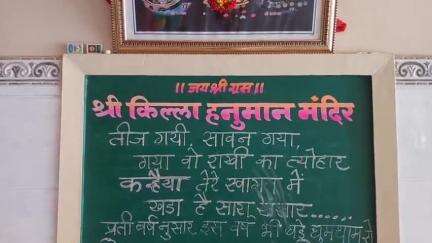 ॥ जय श्री राम ॥
श्री किल्ला हनुमान मंदिर
तीज गयी, सावन गया,
गया वो राखी का त्योहार
कन्हैया तेरे स्वागत में
खडा है सारा संसार......
प्रती वर्षनुसार इस वर्ष भी बडे धुमधाम से